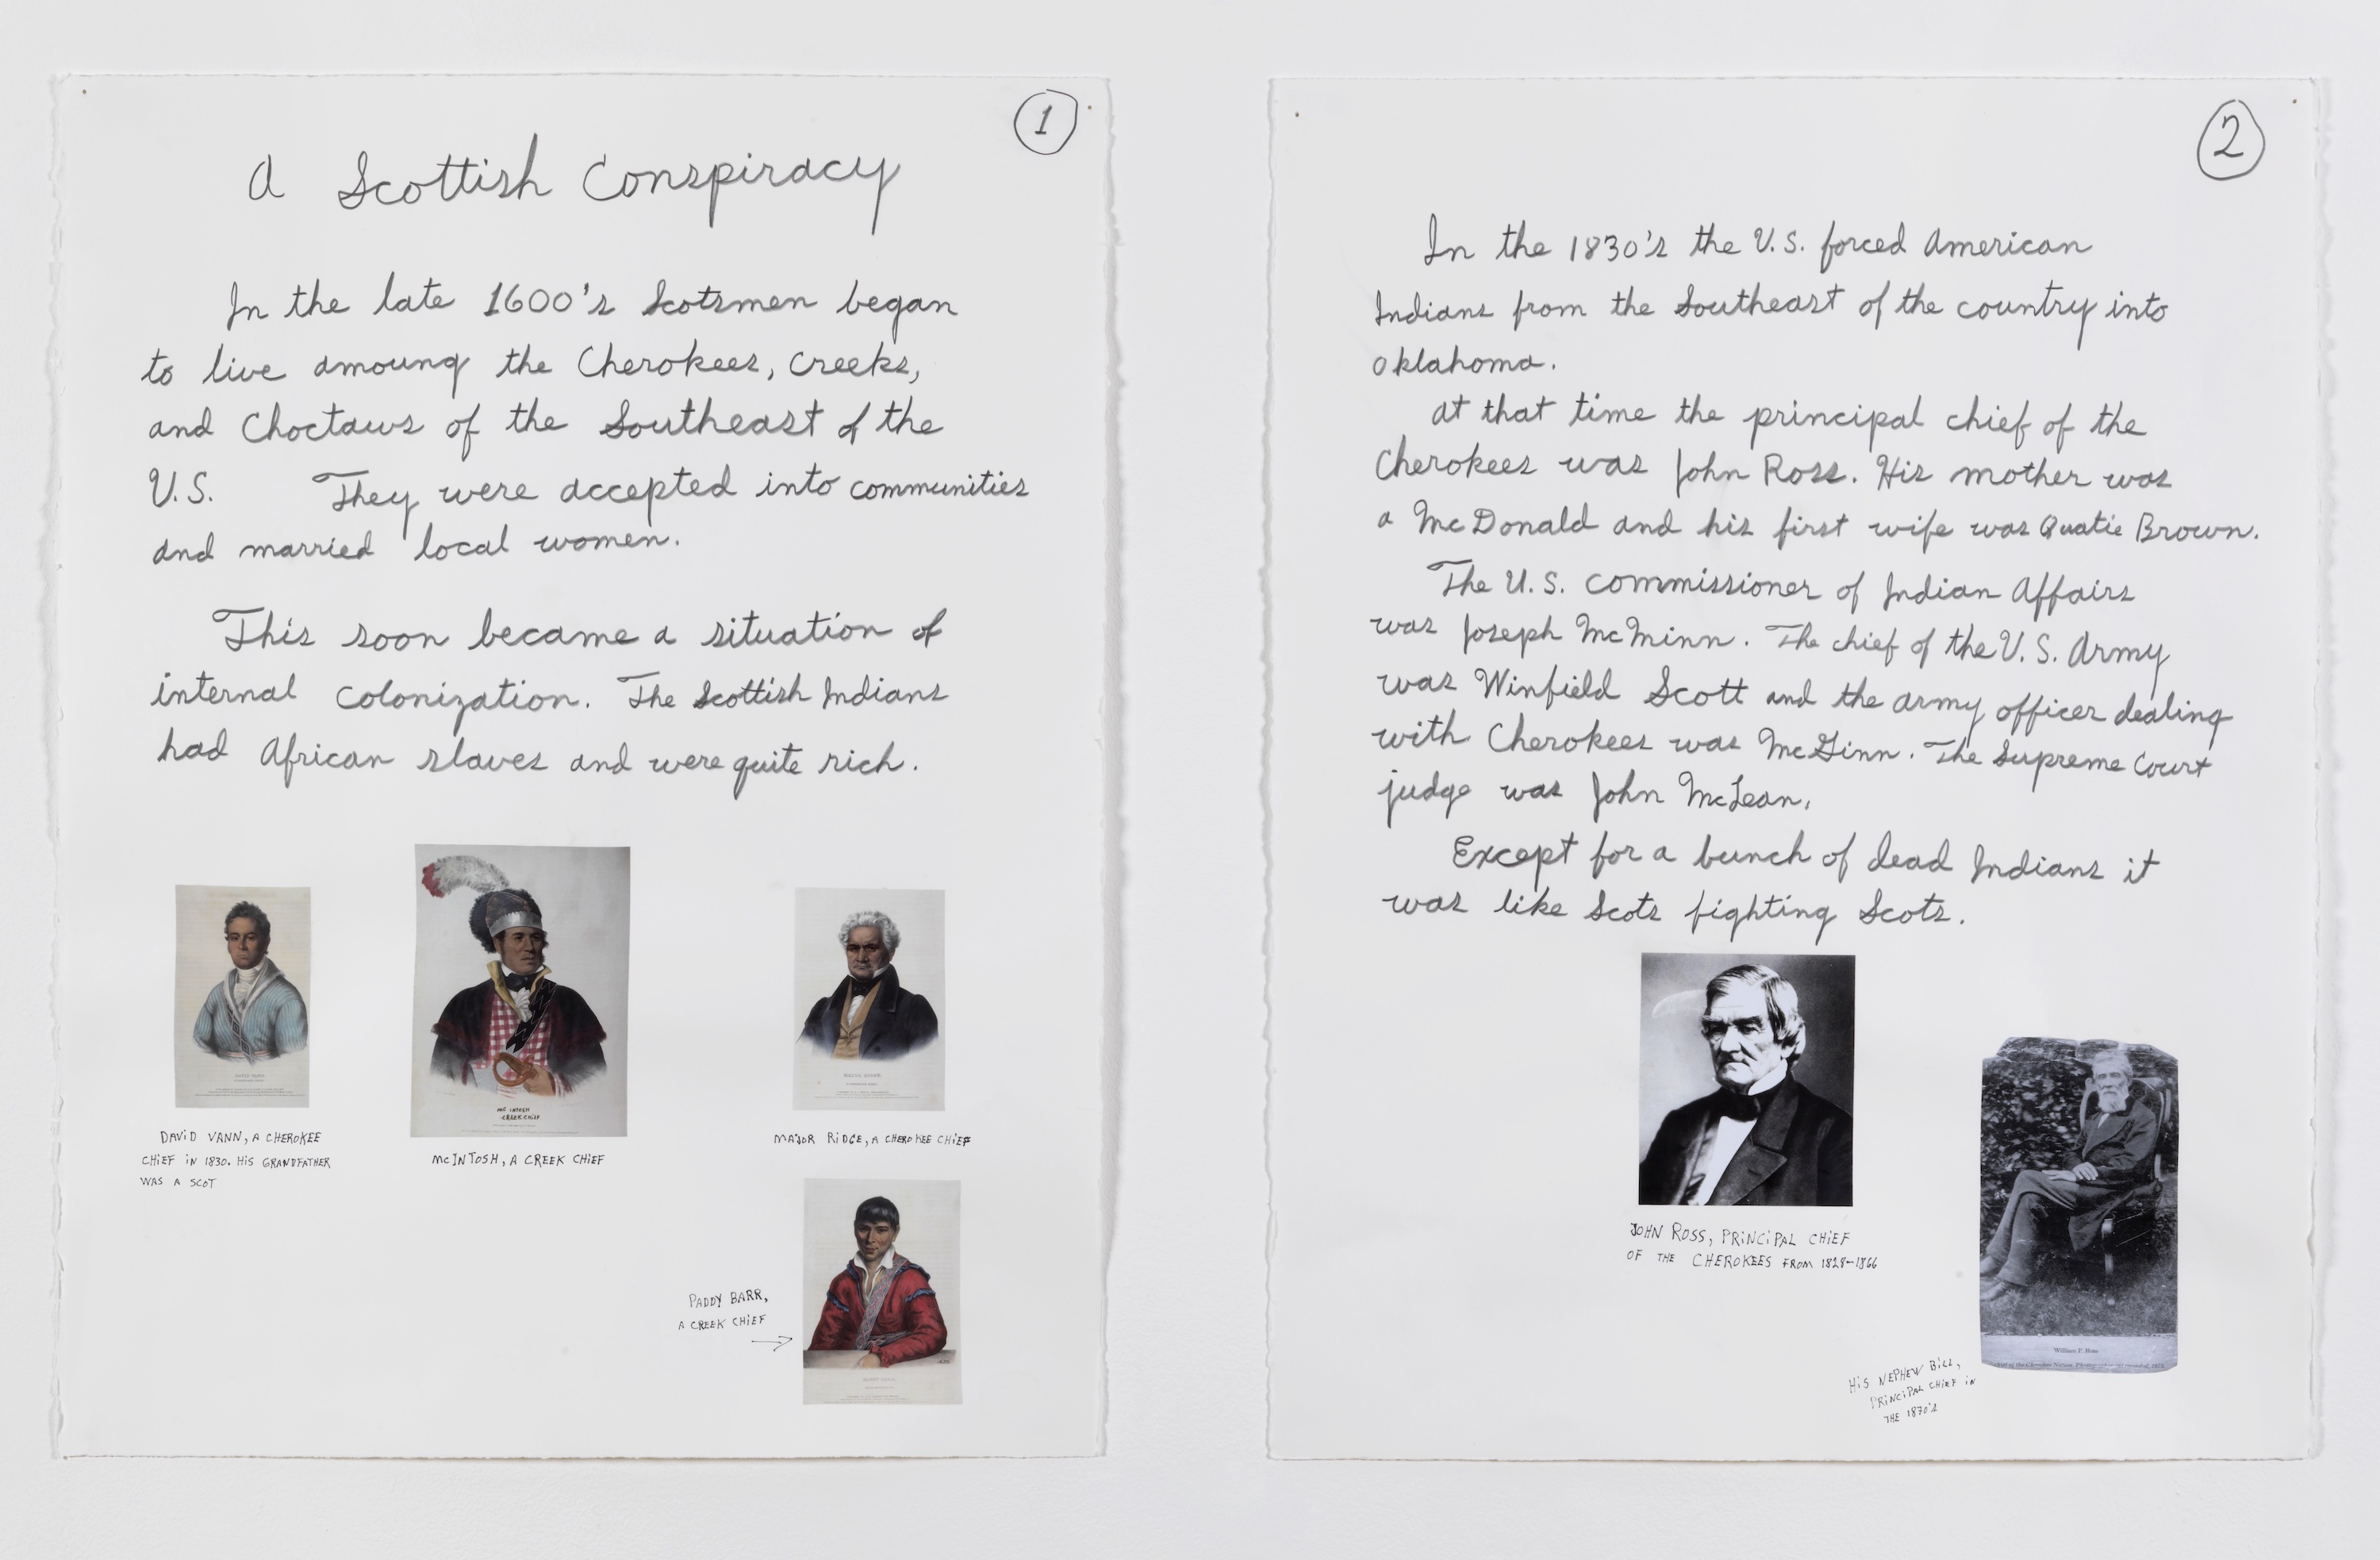 1
A Scottish Conspiracy
In the late 1600's Scotsmen began
to live amoung the Cherokees, Creeks,
and Choctaws of the Southeast of the
U.S. They were accepted into communities
and married local women.
This soon became a situation of
internal colonization. The Scottish Indians
had African slaves and were quite rich.
DAVID VANN, A CHEROKEE
CHIEF IN 1830. HIS GRANDFATHER
WAS A SCOT
MC INTOSH
CREEK CHIEF
McINTOSH, A CREEK CHIEF
MAJOR RIDGE, A CHEROKEE CHIEF
PADDY BARR,
A CREEK CHIEF
2
In the 1830's the U.S. forced American
Indians from the Southeast of the country into
Oklahoma.
At that time the principal chief of the
Cherokees was John Ross. His mother was
a McDonald and his first wife was Quatie Brown.
The U.S. commissioner of Indian Affairs
was Joseph McMinn. The chief of the U.S. Army
was Winfield Scott and the army officer dealing
with Cherokees was McGinn. The Supreme Court
judge was John McLean.
Except for a bunch of dead Indians it
was like Scots fighting Scots.
JOHN ROSS, PRINCIPAL CHIEF
OF THE CHEROKEES FROM 1828-1866
William P. Ross
HIS NEPHEW BILL,
PRINCIPAL CHIEF IN
THE 1870'S